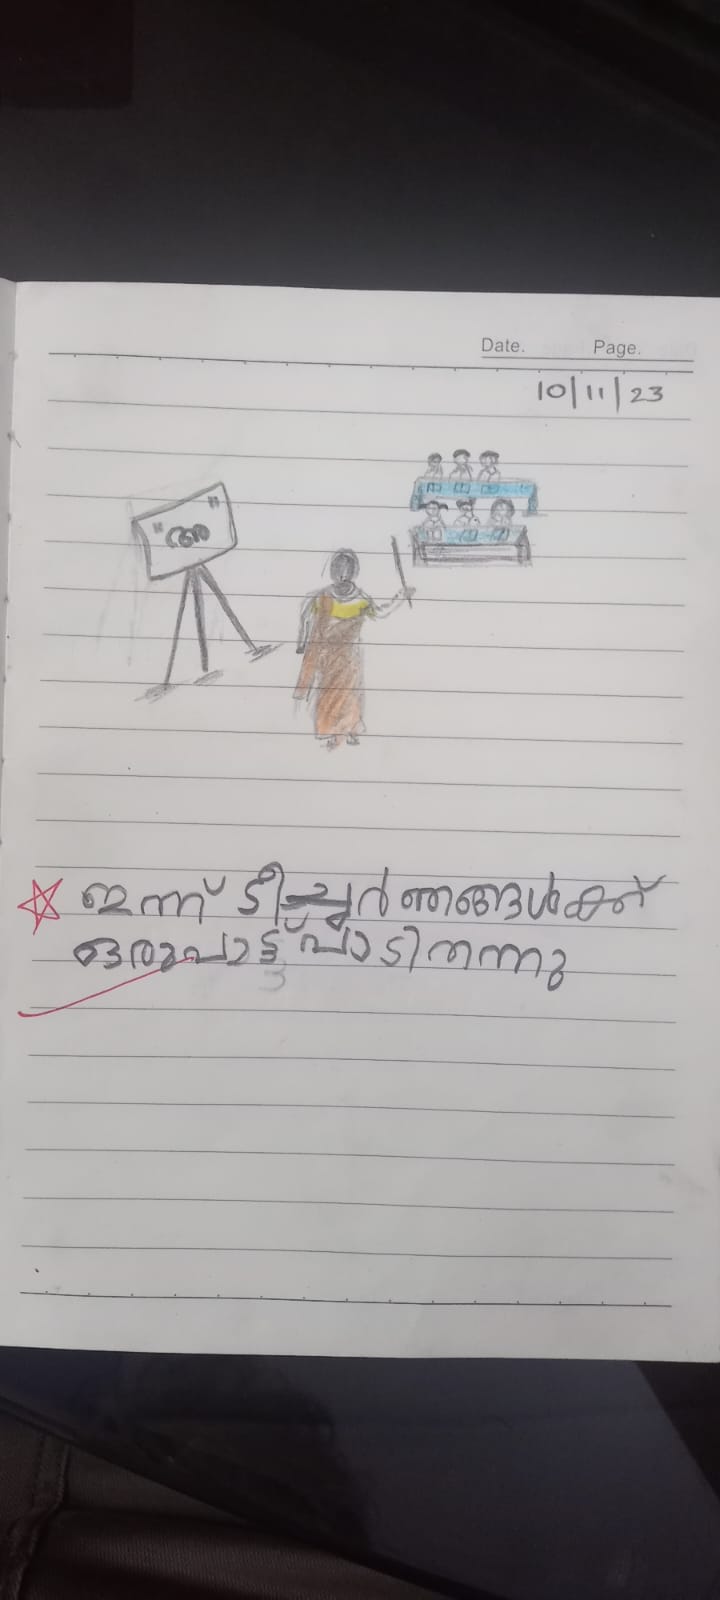 Date. Page.
10/11/23
ഇന്ന് ടീച്ചർ ഞങ്ങൾക്ക്
ഒരുപാട്ട് പാടിതന്നു